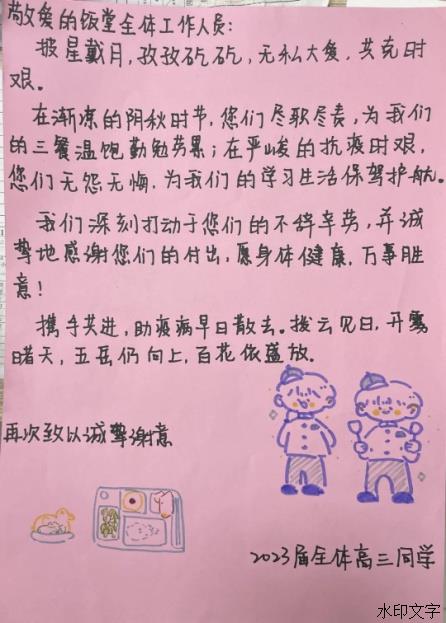 敬爱的饭堂全体工作人员:
披星戴月,孜孜矻矻,无私大爱,共克时
艰。
在渐凉的阴秋时节,您们尽职尽责,为我们
的三餐温饱勤勉劳累;在严峻的抗疫时艰,
您们无怨无悔,为我们的学习生活保驾护航。
我们深刻打动于您们的不辞辛劳,并诚
挚地感谢您们的付出,愿身体健康,万事胜
意!
携手共进,助疫病早日散去。拨云见日,开雾
睹天,五岳仍向上,百花依盛放。
再次致以诚挚谢意
2023届全体高三同学
水印文字